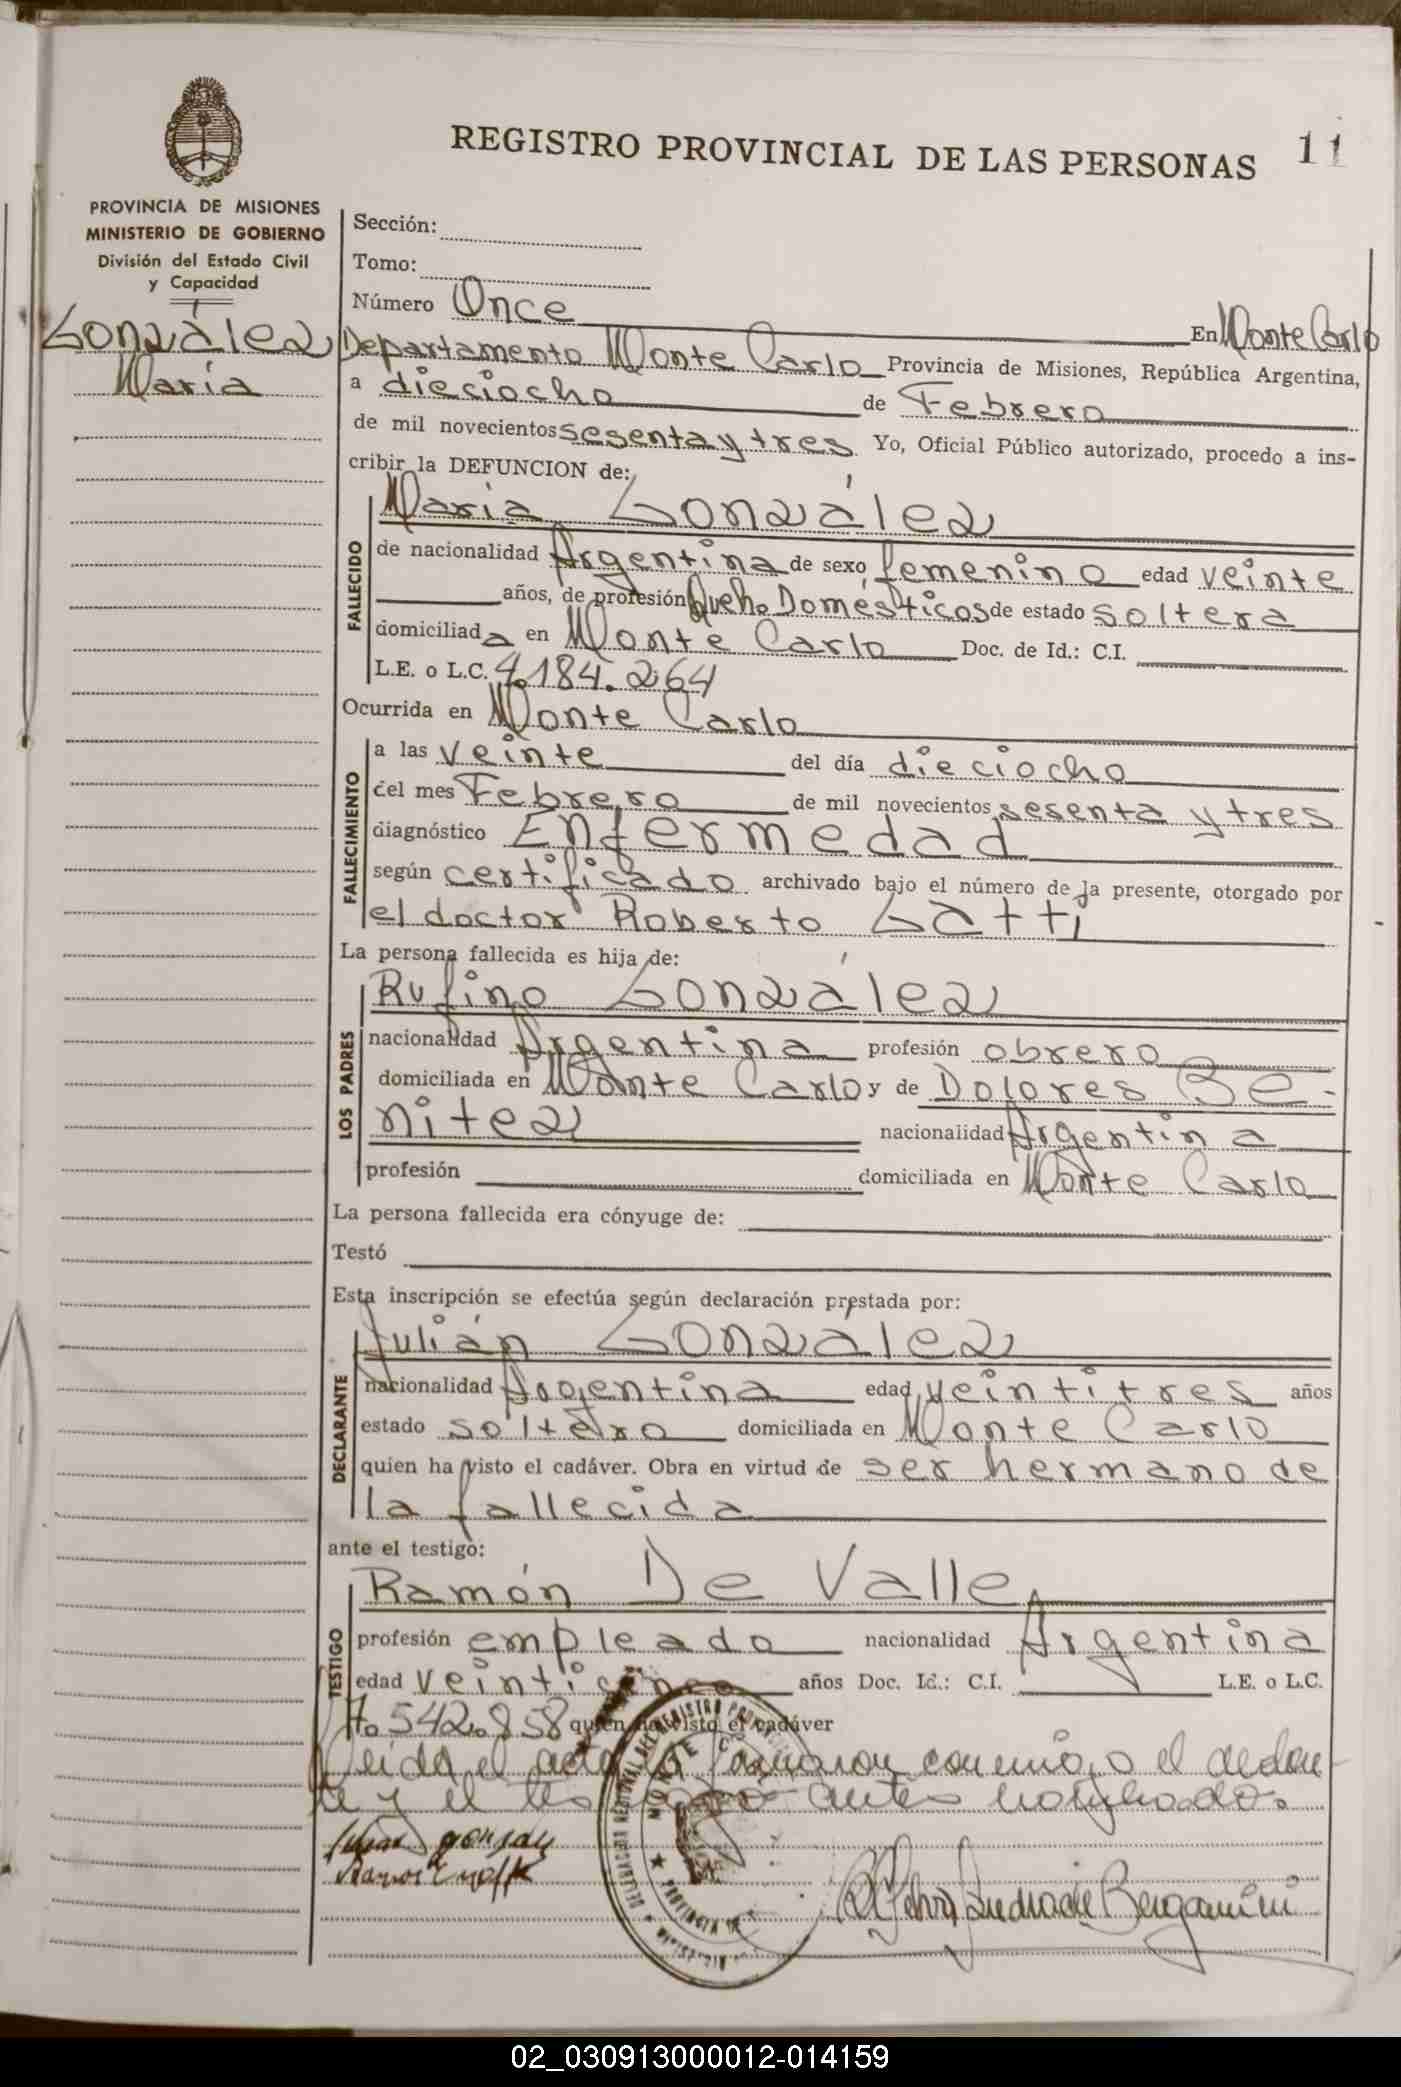 REGISTRO PROVINCIAL DE LAS PERSONAS 11
PROVINCIA DE MISIONES
MINISTERIO DE GOBIERNO
División del Estado Civil
y Capacidad
González
María
Sección:
Tomo:
Número Once En Monte Carlo
Departamento Monte Carlo Provincia de Misiones, República Argentina,
a dieciocho de Febrero
de mil novecientos sesenta y tres Yo, Oficial Público autorizado, procedo a ins-
cribir la DEFUNCION de:
FALLECIDO
María González
de nacionalidad Argentina de sexo femenino edad veinte
años, de profesión Queh. Domésticos de estado soltera
domiciliada en Monte Carlo Doc. de Id.: C.I.
L.E. o L.C. 4.184.264
Ocurrida en Monte Carlo
FALLECIMIENTO
a las veinte del día dieciocho
del mes Febrero de mil novecientos sesenta y tres
diagnóstico Enfermedad
según certificado archivado bajo el número de la presente, otorgado por
el doctor Roberto Gatti
La persona fallecida es hija de:
LOS PADRES
Rufino González
nacionalidad Argentina profesión obrero
domiciliada en Monte Carlo y de Dolores Be-
nitez nacionalidad Argentina
profesión domiciliada en Monte Carlo
La persona fallecida era cónyuge de:
Testó
Esta inscripción se efectúa según declaración prestada por:
DECLARANTE
Julián González
nacionalidad Argentina edad veintitres años
estado soltero domiciliada en Monte Carlo
quien ha visto el cadáver. Obra en virtud de ser hermano de
la fallecida
ante el testigo:
TESTIGO
Ramón De Valle
profesión empleado nacionalidad Argentina
edad veinticinco años Doc. Id.: C.I. L.E. o L.C.
7.542.858 quien ha visto el cadáver
Leida el acta la firmaron conmigo el declaran-
te y el testigo antes
DELEGACION REGIONAL DEL REGISTRO PROVINCIAL
MONTE CARLO
PROVINCIA DE MISIONES
Bergamini
02_030913000012-014159